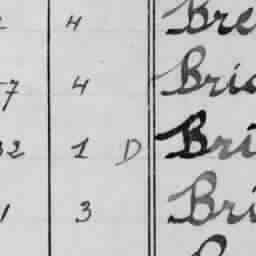 2 4 Bre
7 4 Bric
32 1 D Bri
1 3 Bri